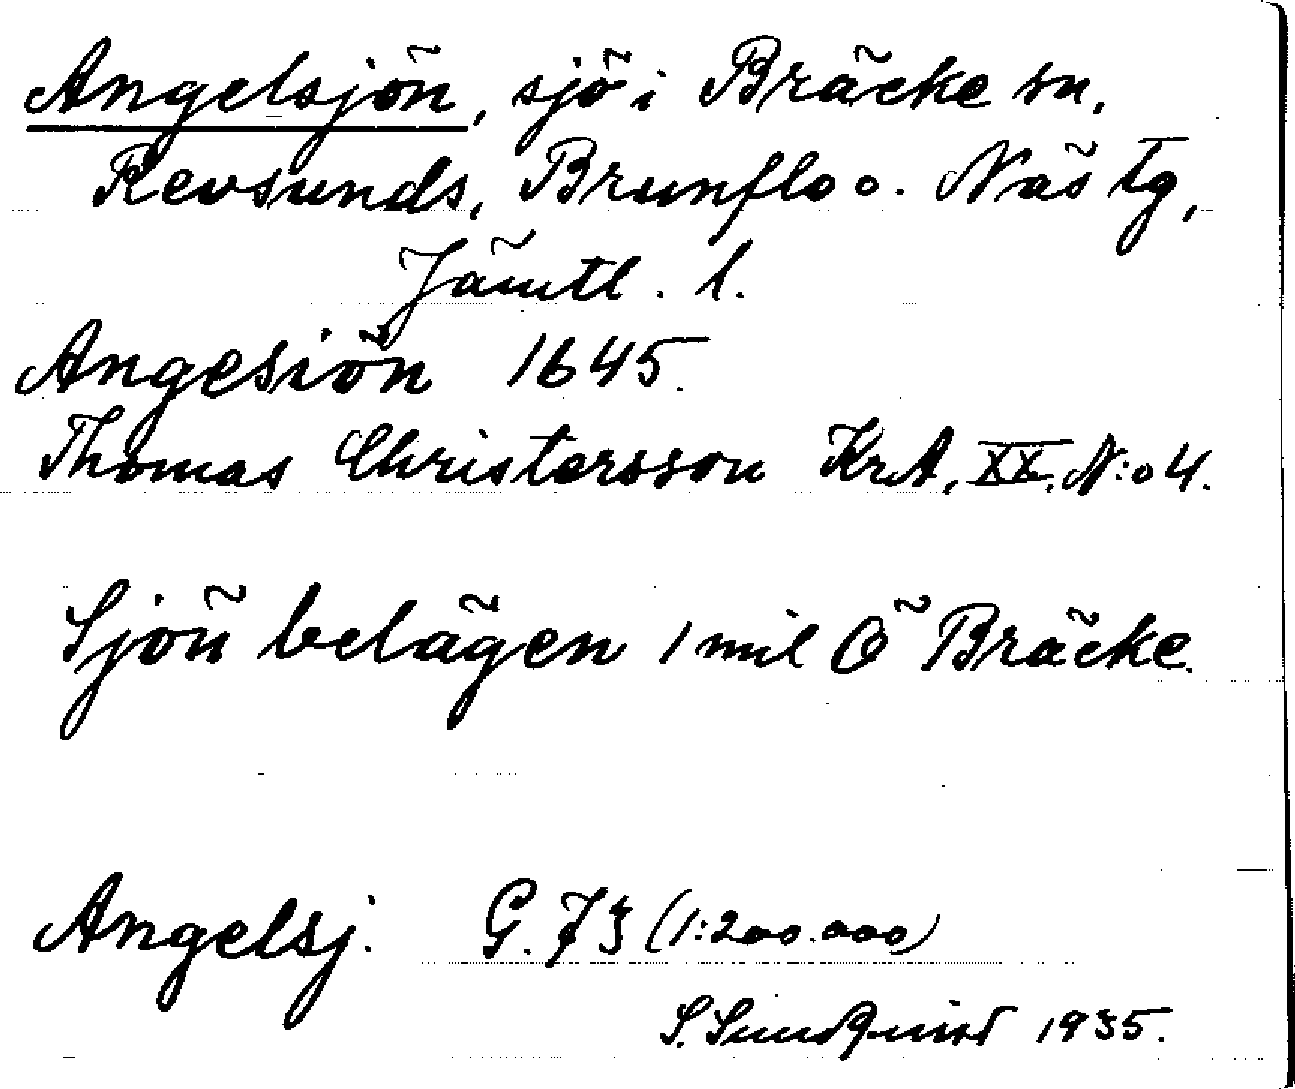 Angelsjön, sjö i Bräcke sn,
Revsunds, Brunflo o. Näs tg,
Jämtl. l.
Angesiön 1645.
Thomas Christersson KrA, XX, N:o 4.
Sjön belägen 1 mil Ö Bräcke.
Angelsj. G. 73 (1:200.000)
S. Sundquist 1935.